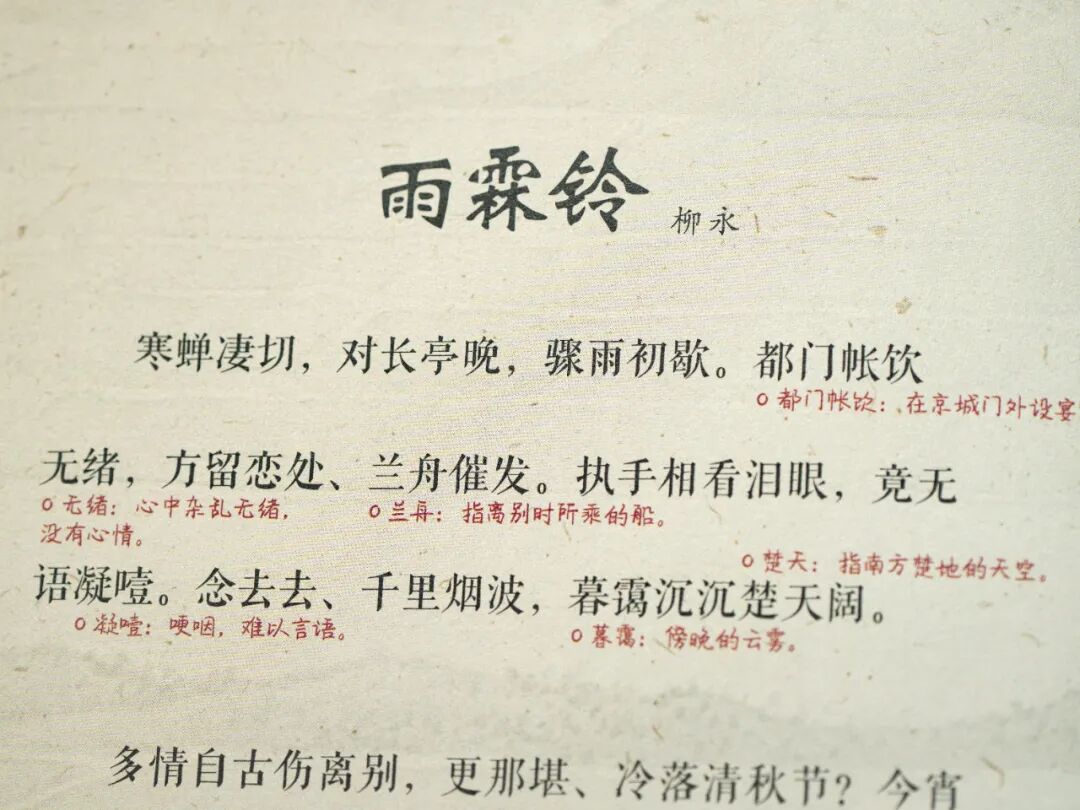 雨霖铃 柳永
寒蝉凄切，对长亭晚，骤雨初歇。都门帐饮
○都门帐饮：在京城门外设宴
无绪，方留恋处、兰舟催发。执手相看泪眼，竟无
○无绪：心中杂乱无绪，
没有心情。
○兰舟：指离别时所乘的船。
○楚天：指南方楚地的天空。
语凝噎。念去去、千里烟波，暮霭沉沉楚天阔。
○凝噎：哽咽，难以言语。
○暮霭：傍晚的云雾。
多情自古伤离别，更那堪、冷落清秋节？今宵